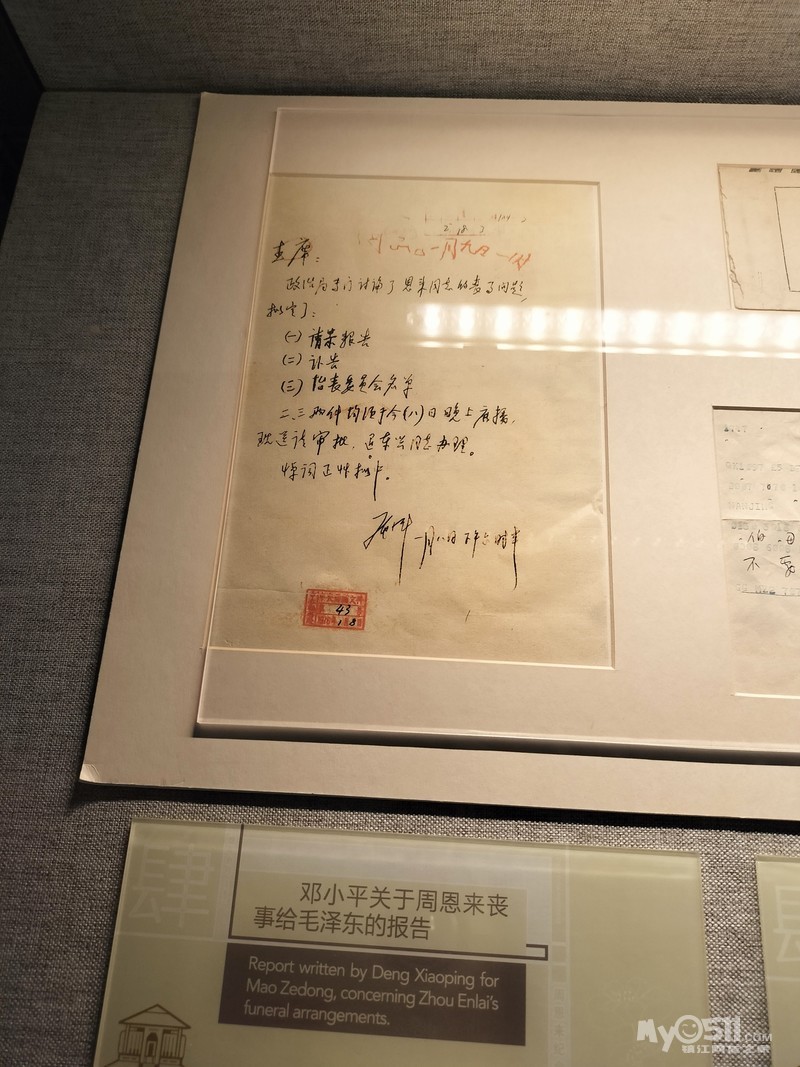 主席：
政治局专门讨论了恩来同志的丧事问题，
拟定了：
(一) 请示报告
(二) 讣告
(三) 治丧委员会名单
二、三两件均须于今(八)日晚上广播，
现送请审批，退东兴同志办理。
悼词正在拟中。
一月八日下午六时半
一月九日
43
1 8
肆
邓小平关于周恩来丧
事给毛泽东的报告
Report written by Deng Xiaoping for
Mao Zedong, concerning Zhou Enlai's
funeral arrangements.
WANJIN
伯母
不要
My0511.COM
镇江网友之家